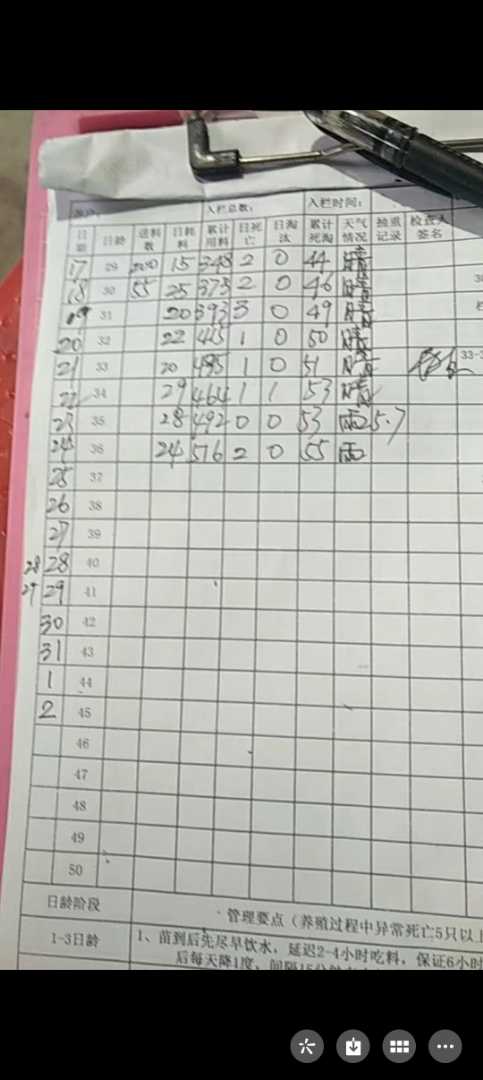 入栏总数： 入栏时间：
日期 日龄 进料数 日耗料 累计用料 日死亡 日淘汰 累计死淘 天气情况 抽重记录 检查人签名
17 29 200 15 348 2 0 44 晴
18 30 55 25 373 2 0 46 晴
19 31 20 393 3 0 49 晴
20 32 22 415 1 0 50 晴
21 33 20 435 1 0 51 晴
22 34 29 464 1 1 53 晴
23 35 28 492 0 0 53 雨 5.7
24 36 24 516 2 0 55 雨
25 37
26 38
27 39
28 28 40
29 29 41
30 42
31 43
1 44
2 45
46
47
48
49
50
日龄阶段 管理要点（养殖过程中异常死亡5只以上
1-3日龄 1、苗到后先尽早饮水，延迟2-4小时吃料，保证6小时
后每天降1度，间隔15分钟